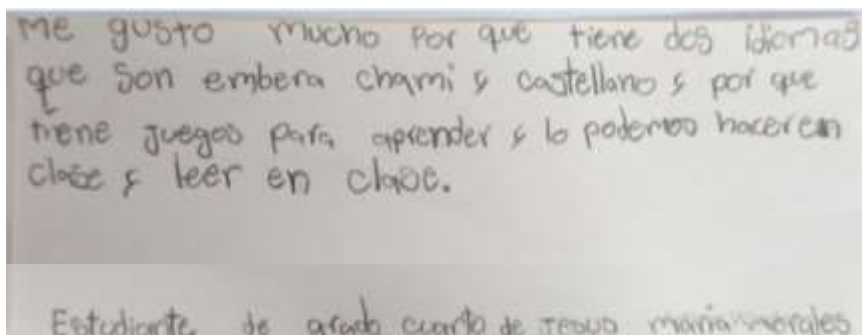 Me gusto mucho por que tiene dos idiomas
que son embera chami y castellano y por que
tiene juegos para aprender y lo podemos hacer en
clase y leer en clase.
Estudiante de grado cuarto de Jesus maria morales